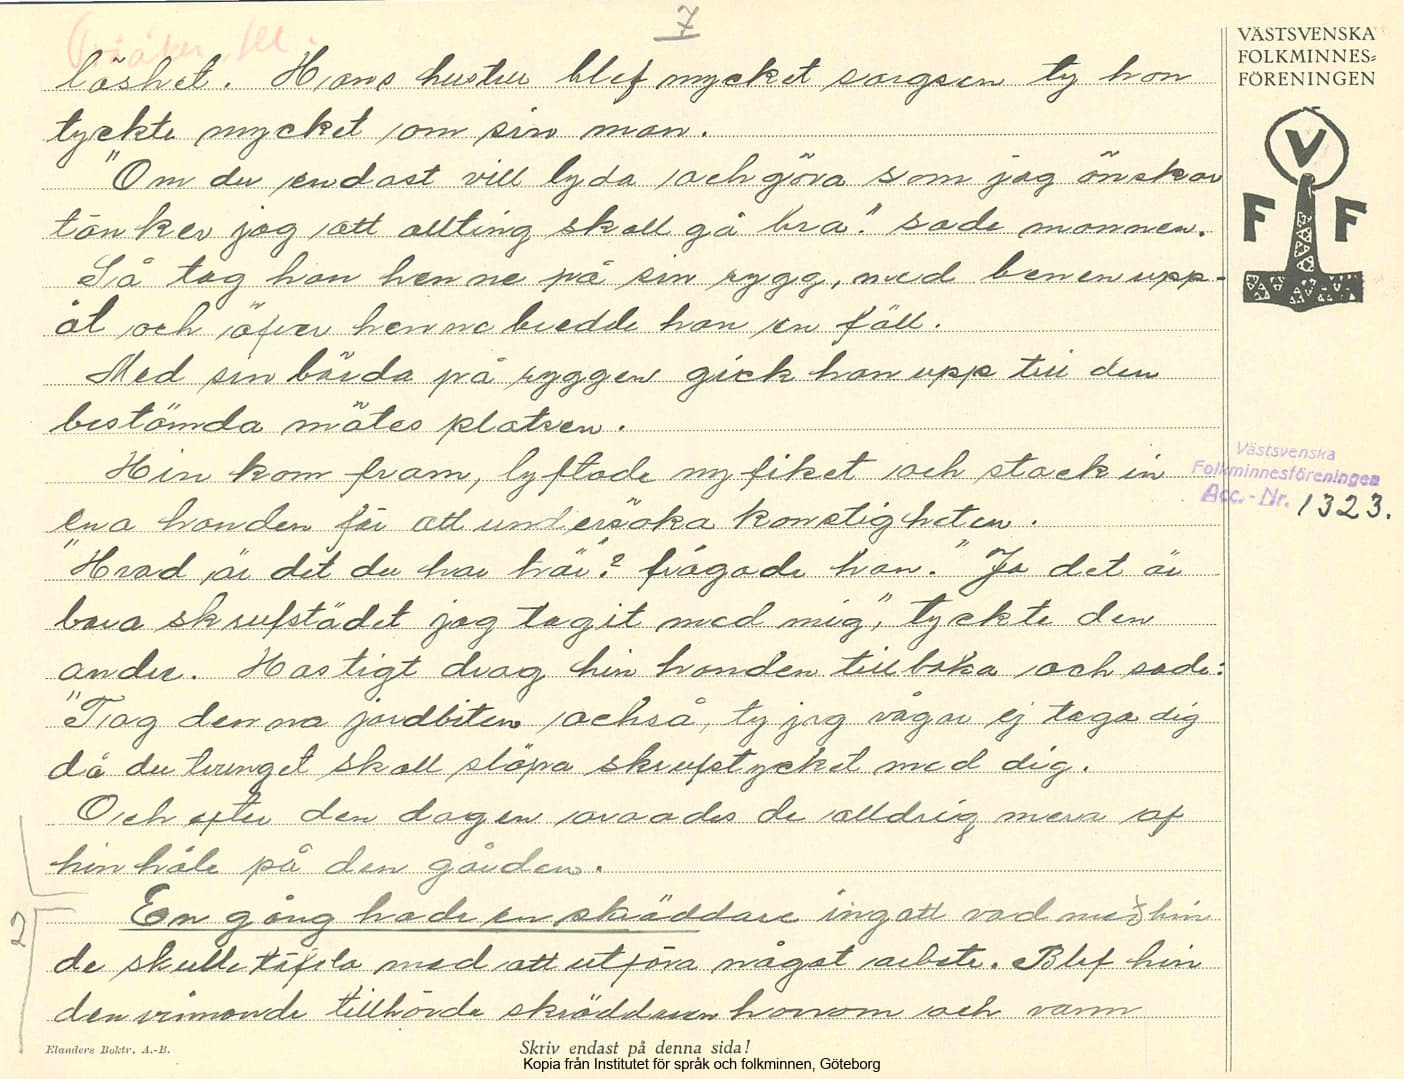 7
löshet. Hans hustru blef mycket sorgsen ty hon
tyckte mycket om sin man.
"Om du endast vill lyda och göra som jag önskar
tänker jag att allting skall gå bra." sade mannen.
Så tog han henne på sin rygg, med benen upp-
åt och öfver henne bredde han en fäll.
Med sin börda på ryggen gick han upp till den
bestämda mötesplatsen.
Hin kom fram, lyftade nyfiket och stack in
ena handen för att undersöka konstigheten.
"Hvad är det du har här"? frågade han. "Ja det är
bara skrufstädet jag tagit med mig", tyckte den
andre. Hastigt drog hin handen tillbaka och sade:
"Tag denna jordbiten också, ty jag vågar ej taga dig
då du tvunget skall släpa skrufstycket med dig.
Och efter den dagen oroades de alldrig mera af
hin håle på den gården.
2
En gång hade en skräddare ingått vad med hin
de skulle täfvla med att utföra något arbete. Blef hin
den vinnande tillhörde skräddaren honom och vann
VÄSTSVENSKA
FOLKMINNES=
FÖRENINGEN
V
F F
Västsvenska
Folkminnesföreningen
Acc.-Nr. 1323.
Elanders Boktr. A.-B.
Skriv endast på denna sida!
Kopia från Institutet för språk och folkminnen, Göteborg